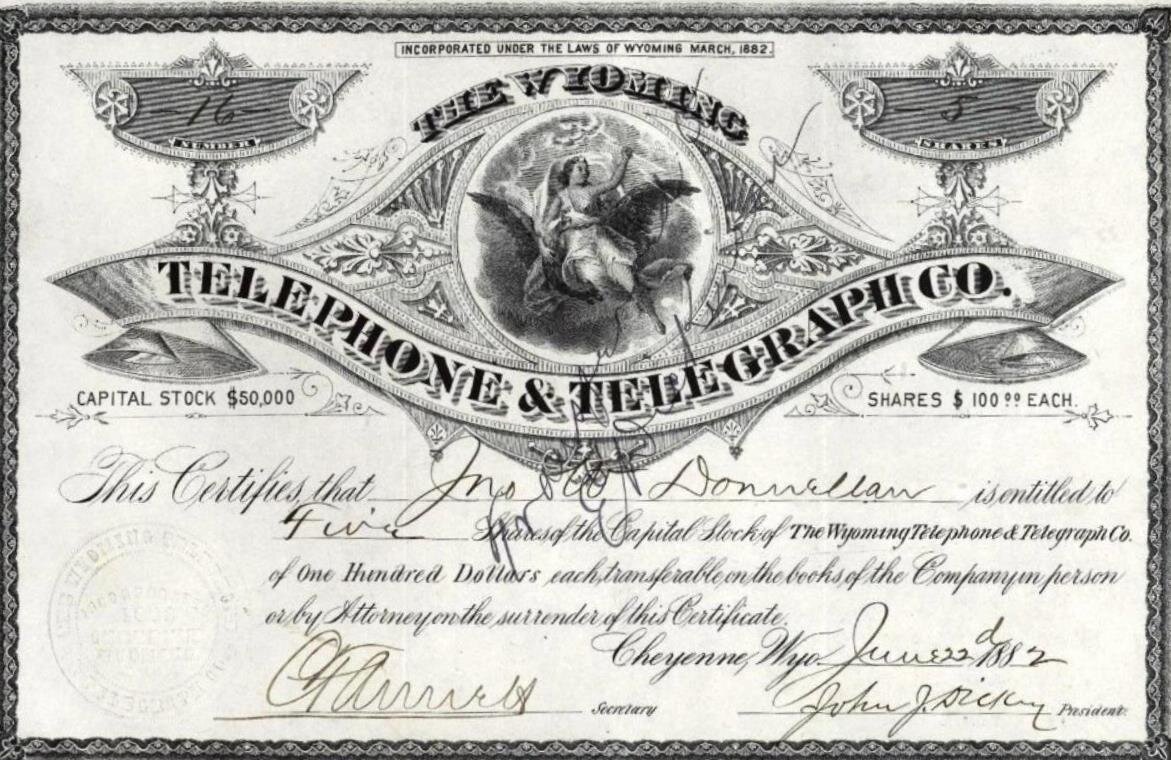 INCORPORATED UNDER THE LAWS OF WYOMING MARCH, 1882.
16
NUMBER
5
SHARES
THE WYOMING
TELEPHONE & TELEGRAPH CO.
CAPITAL STOCK $50,000
SHARES $ 100 00 EACH.
This Certifies, that Jno W Donnellan is entitled to
Five Shares of the Capital Stock of The Wyoming Telephone & Telegraph Co.
of One Hundred Dollars each, transferable on the books of the Company in person
or by Attorney on the surrender of this Certificate.
Cheyenne, Wyo. June 22d 1882
Secretary
John J. Dickey President.